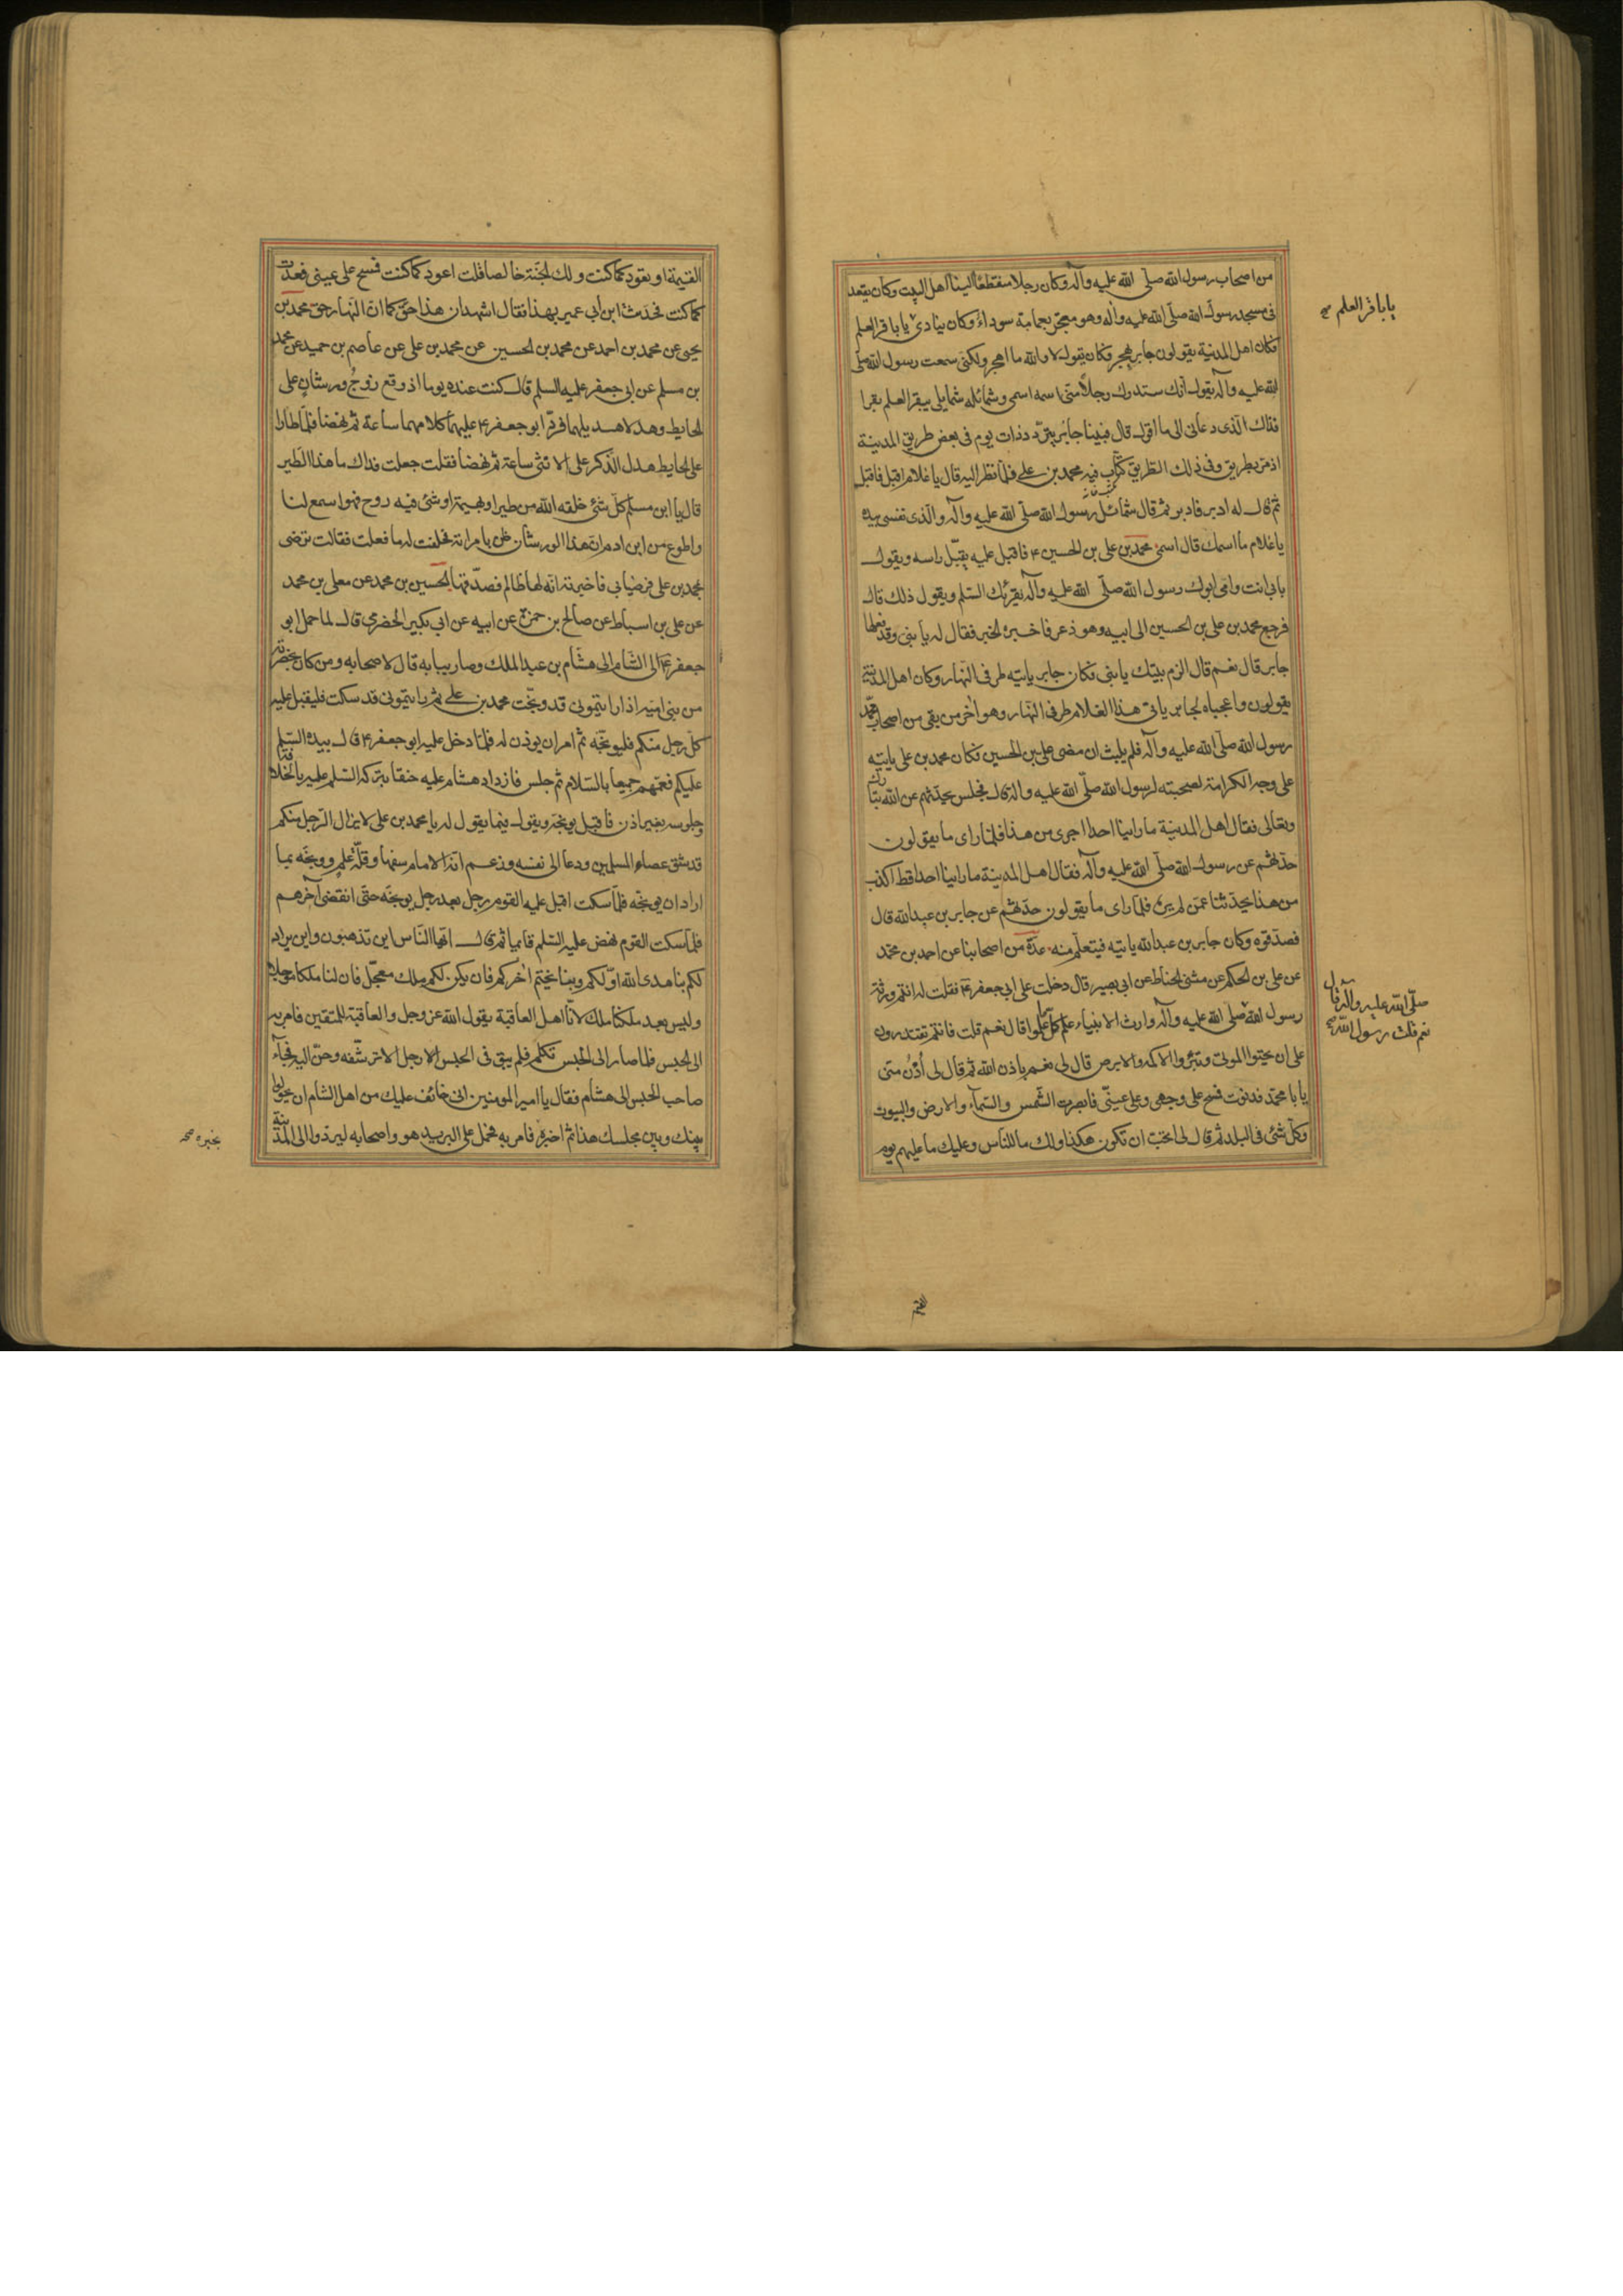 من اصحاب رسول الله صلّى الله عليه وآله وكان رجلا منقطعًا الينا اهل البيت وكان يقعد
فى مسجد رسول الله صلّى الله عليه وآله وهو معتجر بعمامة سوداء وكان ينادى يا باقر العلم
يا باقر العلم صح
فكان اهل المدينة يقولون جابر يهجر فكان يقول لا والله ما اهجر ولكنى سمعت رسول الله صلّى
الله عليه وآله يقول انك ستدرك رجلًا منّى اسمه اسمى وشمائله شمايلى يبقر العلم بقرا
فذاك الذى دعانى الى ما اقول قال فبينا جابر يتردّد ذات يوم فى بعض طريق المدينة
اذ مرّ بطريق وفى ذلك الطريق كتّاب فيه محمد بن على فلمّا نظر اليه قال يا غلام اقبل فاقبل
ثم قال له ادبر فادبر ثم قال شمائل رسول الله صلّى الله عليه وآله والّذى نفسى بيده
يا غلام ما اسمك قال اسمى محمد بن على بن الحسين ع فاقبل عليه يقبّل راسه ويقول
بابى انت وامى ابوك رسول الله صلّى الله عليه وآله يقرئك السّلم ويقول ذلك قال
فرجع محمد بن على بن الحسين الى ابيه وهو ذعر فاخبره الخبر فقال له يا بنى وقد فعلها
جابر قال نعم قال الزم بيتك يا بنى فكان جابر ياتيه طرفى النّهار وكان اهل المدينة
يقولون واعجباه لجابر ياتى هذا الغلام طرفى النهار وهو اٰخر من بقى من اصحاب
رسول الله صلّى الله عليه وآله فلم يلبث ان مضى على بن الحسين فكان محمد بن على ياتيه
على وجه الكرامة لصحبته لرسول الله صلّى الله عليه وآله قال فجلس يحدّثهم عن الله تبارك
وتعالى فقال اهل المدينة ما راينا احدا اجرى من هذا فلمّا راى ما يقولون
حدّثهم عن رسول الله صلّى الله عليه وآله فقال اهل المدينة ما راينا احدا قط اكذب
من هذا يحدّثنا عمّن لم يره فلمّا راى ما يقولون حدّثهم عن جابر بن عبد الله قال
فصدّقوه وكان جابر بن عبد الله ياتيه فيتعلّم منه عدّة من اصحابنا عن احمد بن محمّد
عن على بن الحكم عن مثنى الحنّاط عن ابى بصير قال دخلت على ابى جعفر ع فقلت له انتم ورثة
رسول الله صلى الله عليه وآله وارث الانبياء علم كلّما علموا قال نعم قلت فانتم تقتدرون
صلّى الله عليه وآله قال
نعم قلت رسول الله صح
على ان تحيوا الموتى وتبرؤوا الاكمه والابرص قال لى نعم باذن الله ثم قال لى اُدْنُ منى
يا با محمّد فدنوت فمسح على وجهى وعلى عينىّ فابصرت الشّمس والسّماء والارض والبيوت
وكلّ شئ فى البلد ثم قال لى اتحبّ ان تكون هكذا ولك ما للناس وعليك ما عليهم يوم
القيمة او تعود كما كنت ولك الجنّة خالصا قلت اعود كما كنت فمسح على عينى فعدت
كما كنت فحدّثت ابن ابى عمير بهذا فقال اشهد ان هذا حقّ كما انّ النّهار حق محمد بن
يحيى عن محمد بن احمد عن محمد بن الحسين عن محمد بن على عن عاصم بن حميد عن محمد
بن مسلم عن ابى جعفر عليه السلم قال كنت عنده يوما اذ وقع زوجُ ورشان على
الحايط وهدلا هديلهما فردّ ابو جعفر ع عليهما كلامهما ساعة ثم نهضا فلمّا طارا
على الحايط هدل الذّكر على الانثى ساعة ثم نهضا فقلت جعلت فداك ما هذا الطير
قال يا ابن مسلم كلّ شئ خلقه الله من طير او بهيمة او شئ فيه روح فهو اسمع لنا
واطوع من ابن ادم ان هذا الورشان ظن بامراته فحلفت له ما فعلت فقالت ترضى
بمحمد بن على فرضيا بى فاخبرته انّه لها ظالم فصدّقها الحسين بن محمد عن معلى بن محمد
عن على بن اسباط عن صالح بن حمزة عن ابيه عن ابى بكير الحضرمى قال لما حمل ابو
جعفر ع الى الشّام الى هشام بن عبد الملك وصار ببابه قال لاصحابه ومن كان بحضرته
من بنى اميّة اذا رايتمونى قد وبّخت محمد بن على ثم رايتمونى قد سكت فليقبل عليه
كلّ رجل منكم فليوبّخه ثم امر ان يوذن له فلمّا دخل عليه ابو جعفر ع قال بيده السّلم
عليكم فعمّهم جميعا بالسّلام ثم جلس فازداد هشام عليه حنقا بتركه السّلم عليه بالخلافة
وجلوسه بغير اذن فاقبل يوبّخه ويقول فيما يقول له يا محمد بن على لا يزال الرّجل منكم
قد شق عصا المسلمين ودعا الى نفسه وزعم انّه الامام سفها وقلّة علم ووبّخه بما
اراد ان يوبّخه فلمّا سكت اقبل عليه القوم رجل بعد رجل يوبّخه حتّى انقضى آخرهم
فلمّا سكت القوم نهض عليه السّلم قايما ثم قال ايّها النّاس اين تذهبون واين يراد
بكم بنا هدى الله اوّلكم وبنا يختم اٰخركم فان يكن لكم ملك معجّل فان لنا ملكا موجلا
وليس بعد ملكنا ملك لانّا اهل العاقبة يقول الله عز وجل والعاقبة للمتقين فامر به
الى الحبس فلمّا صار الى الحبس تكلّم فلم يبق فى الحبس الا رجل الا ترشّفه وحنّ اليه فجاء
صاحب الحبس الى هشام فقال يا امير المومنين انى خائف عليك من اهل الشام ان يحولوا
بينك وبين مجلسك هذا ثم اخبره فامر به فحمل على البريد هو واصحابه ليردّوا الى المدينة
بخبره صح